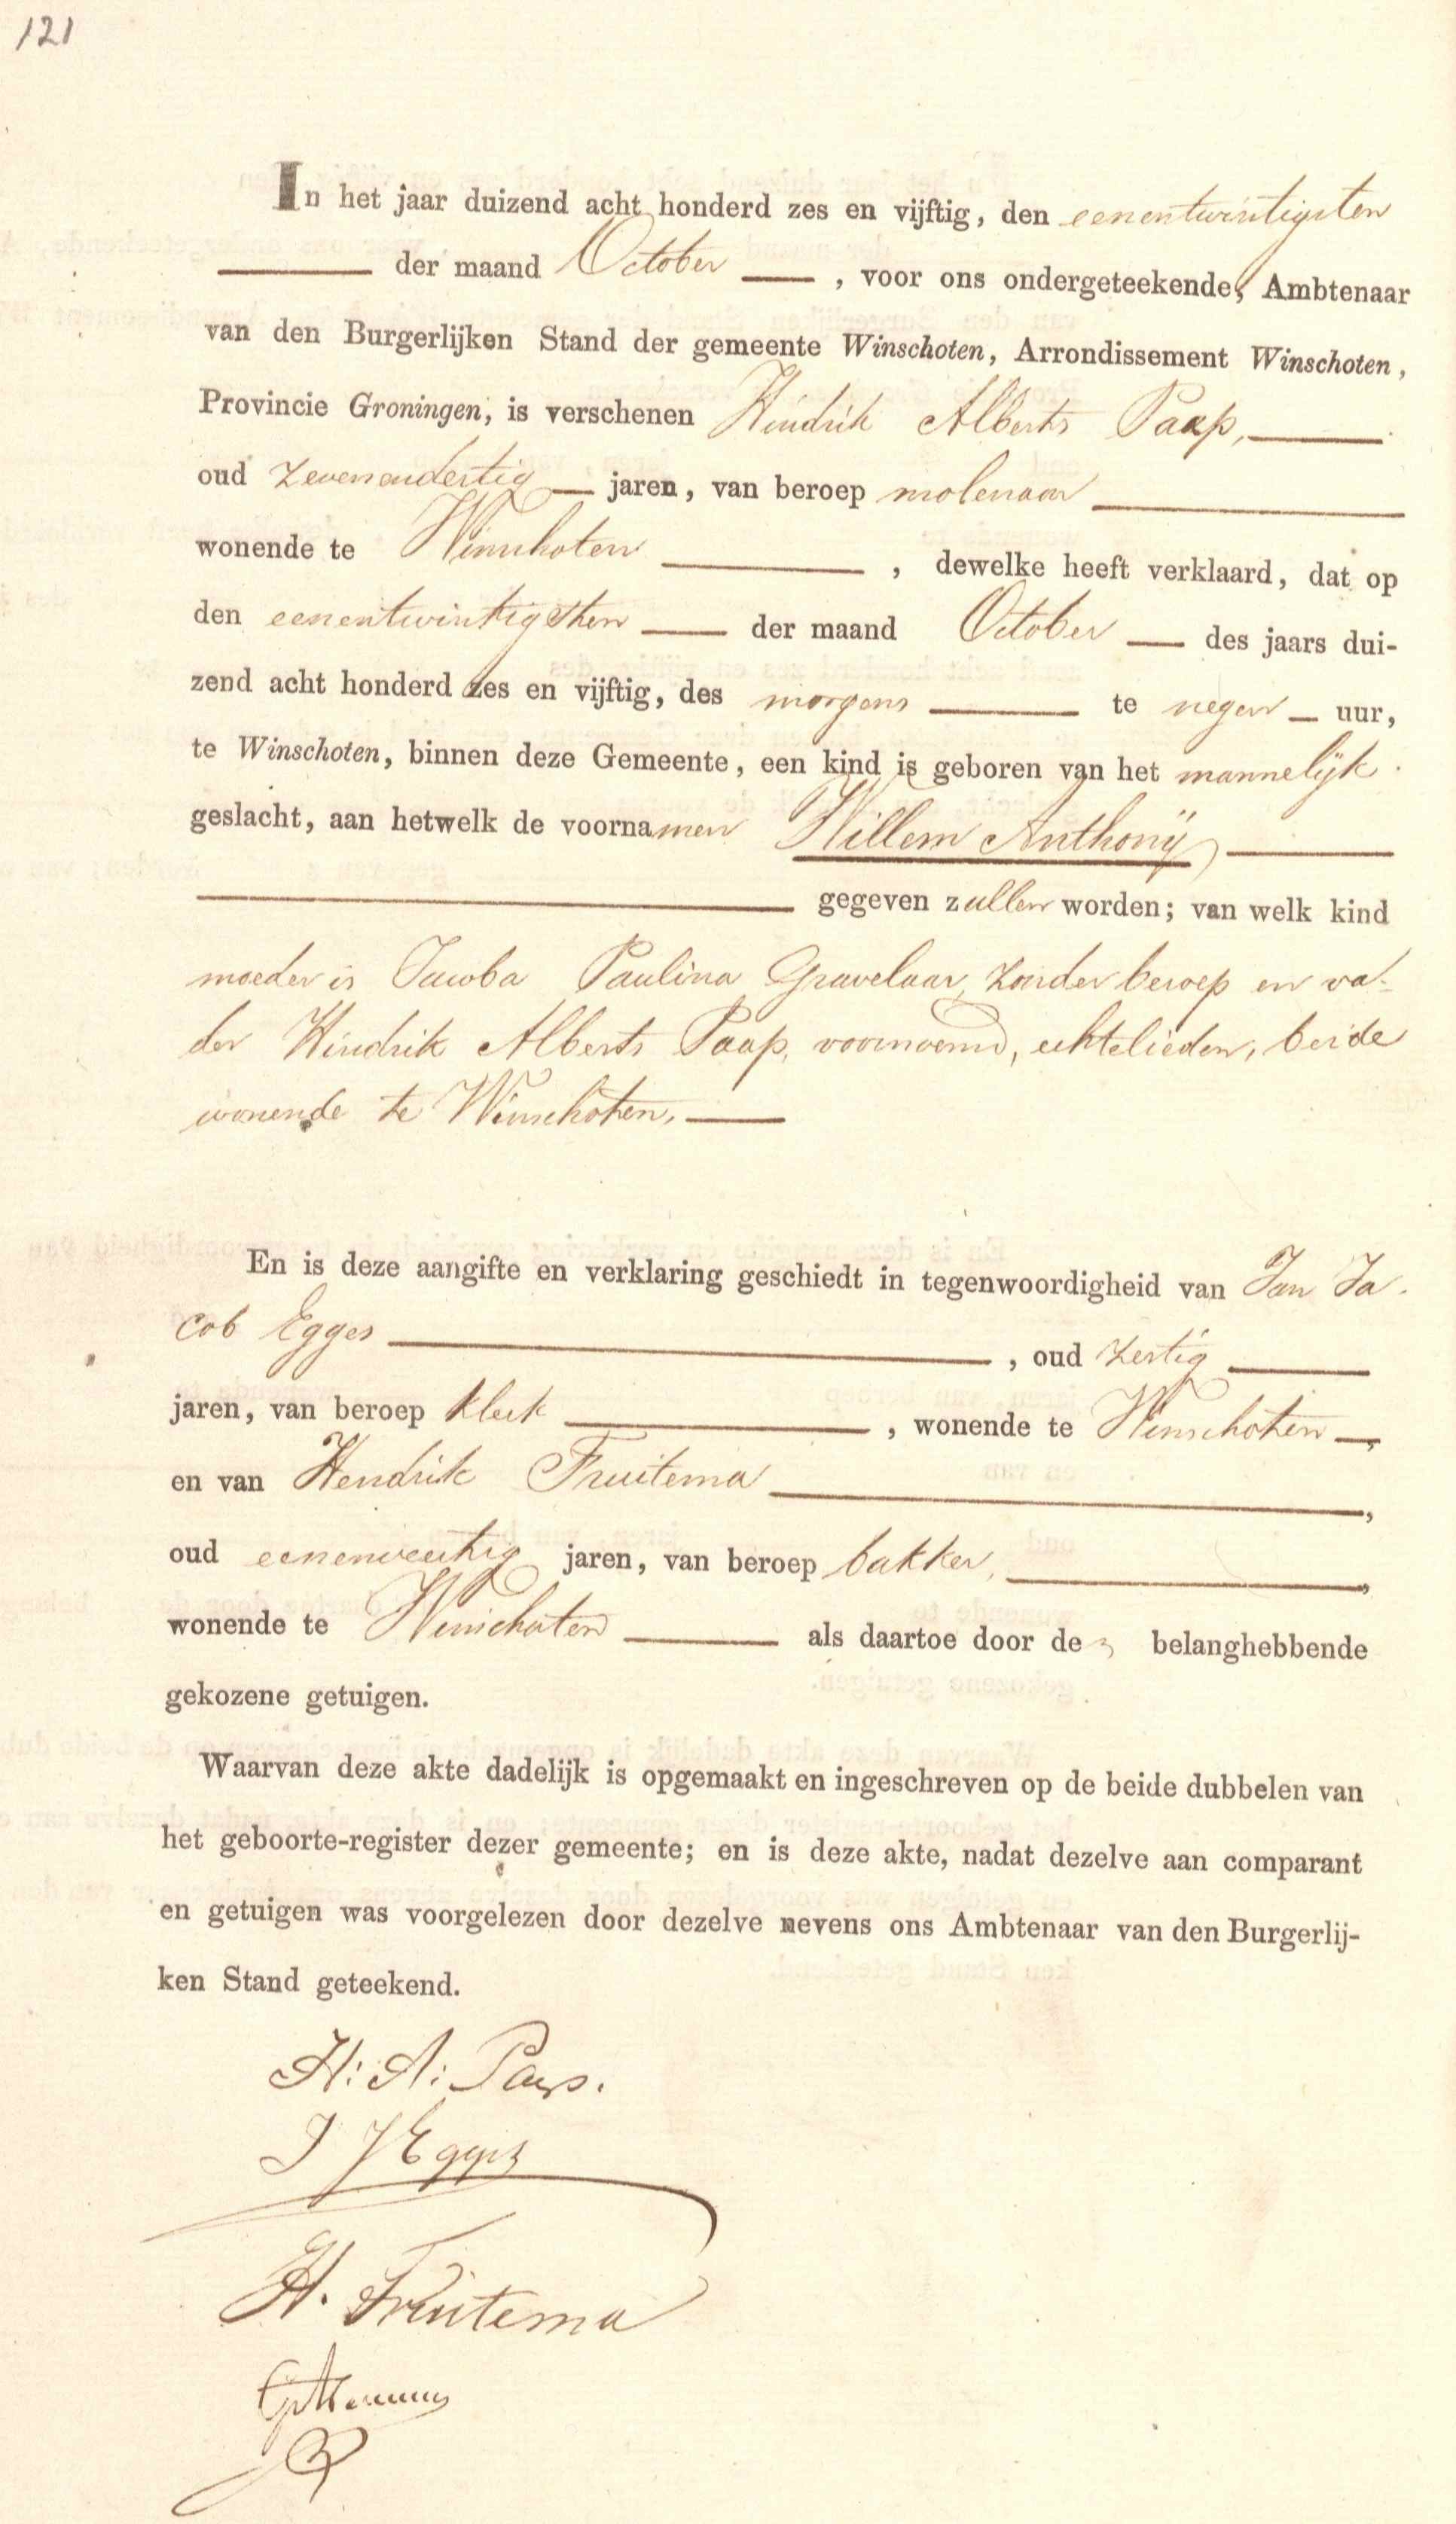 121
In het jaar duizend acht honderd zes en vijftig, den eenentwintigsten
der maand October, voor ons ondergeteekende, Ambtenaar
van den Burgerlijken Stand der gemeente Winschoten, Arrondissement Winschoten,
Provincie Groningen, is verschenen Hindrik Alberts Paap,
oud zevenendertig jaren, van beroep molenaar
wonende te Winschoten, dewelke heeft verklaard, dat op
den eenentwintigsten der maand October des jaars dui-
zend acht honderd zes en vijftig, des morgens te negen uur,
te Winschoten, binnen deze Gemeente, een kind is geboren van het mannelijk
geslacht, aan hetwelk de voornamen Willem Anthonij
gegeven zullen worden; van welk kind
moeder is Jacoba Paulina Gravelaar, zonder beroep en va-
der Hindrik Alberts Paap, voornoemd, echtelieden, beide
wonende te Winschoten.
En is deze aangifte en verklaring geschiedt in tegenwoordigheid van Jan Ja-
cob Egges, oud zestig
jaren, van beroep klerk, wonende te Winschoten,
en van Hendrik Fruitema,
oud eenenveertig jaren, van beroep bakker,
wonende te Winschoten als daartoe door de belanghebbende
gekozene getuigen.
Waarvan deze akte dadelijk is opgemaakt en ingeschreven op de beide dubbelen van
het geboorte-register dezer gemeente; en is deze akte, nadat dezelve aan comparant
en getuigen was voorgelezen door dezelve nevens ons Ambtenaar van den Burgerlij-
ken Stand geteekend.
H: A: Paap.
J J Egges
H. Fruitema